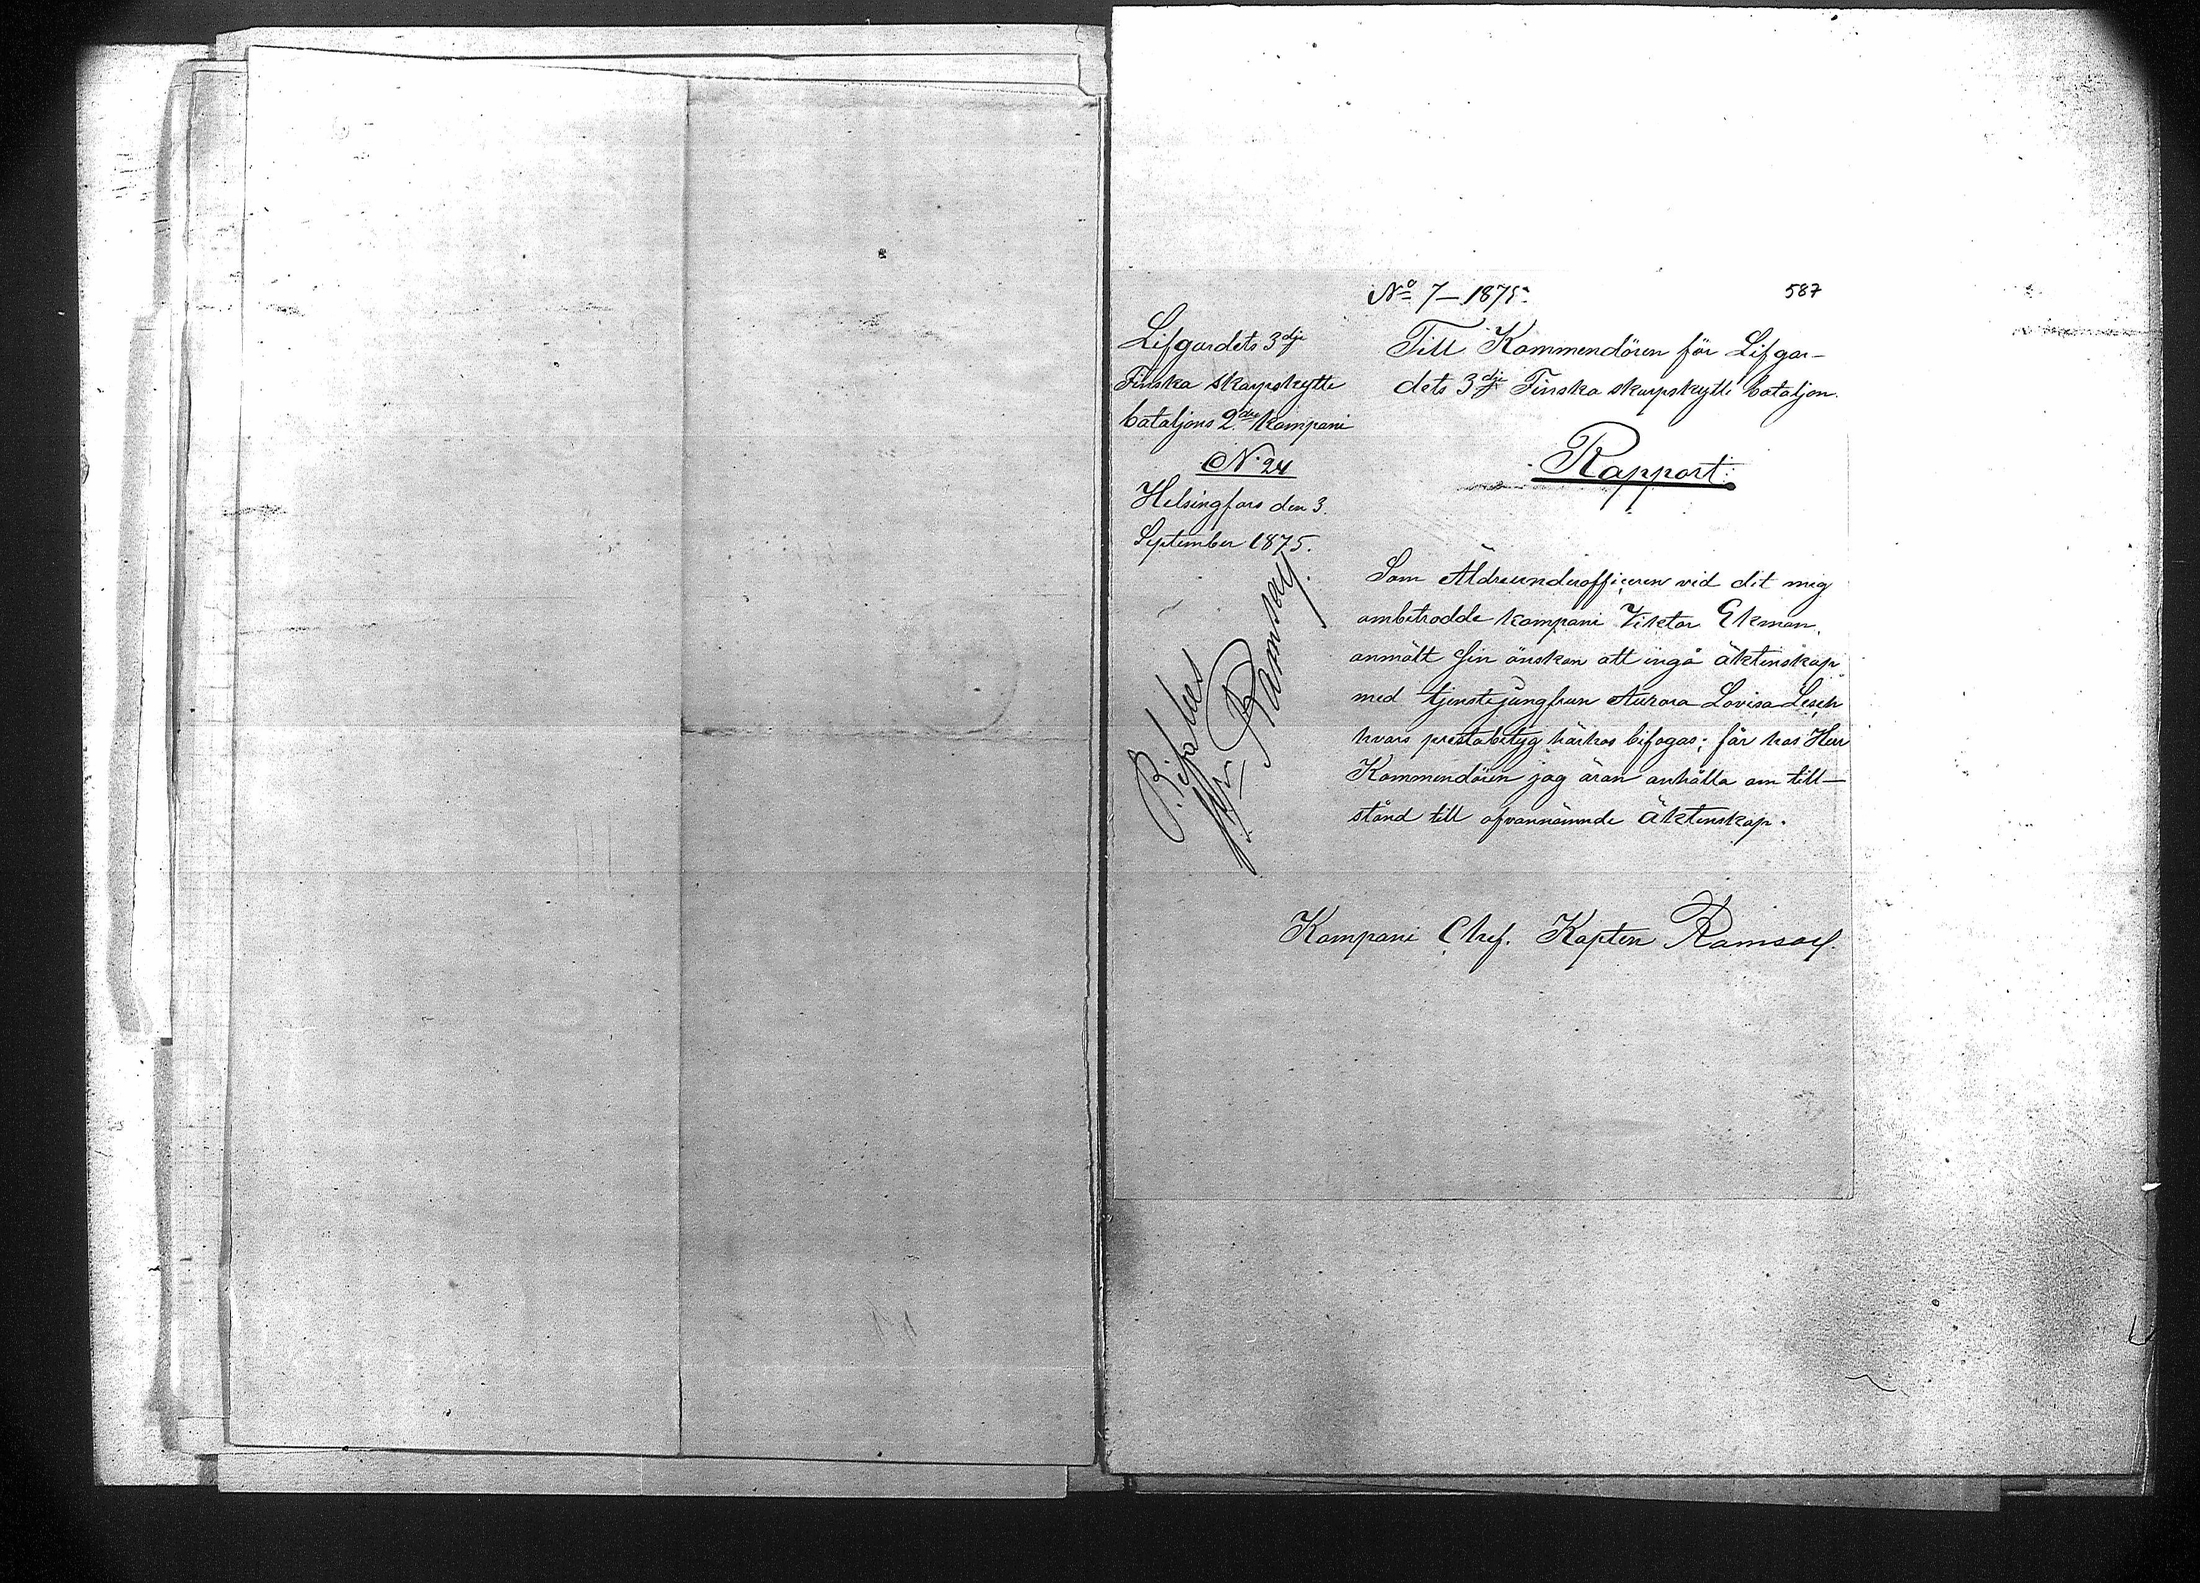 Nº 7 — 1875.
587
Lifgardets 3dje
Finska skarpskytte
bataljons 2dra kompani
N. 24
Helsingfors den 3.
September 1875.
Till Kommendören för Lifgar-
dets 3dje Finska skarpskytte bataljon.
Rapport.
Som Äldreunderofficeren vid det mig
ambetrodde kompani Viktor Ekman,
anmält sin önskan att ingå äktenskap
med tjenstejungfrun Aurora Lovisa Lesch
hvars prestabetyg härhos bifogas; får hos Herr
Kommendören jag äran anhålla om till-
stånd till ofvannämnde äktenskap.
Kompani Chef. Kapten Ramsay.
Bifalles
Ramsay.